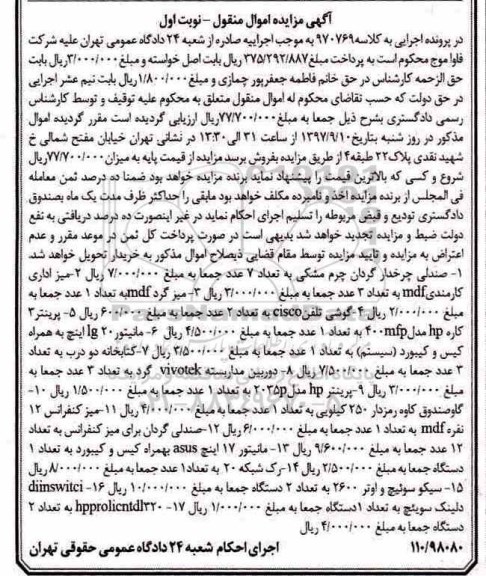 آگهی مزایده اموال منقول – نوبت اول
در پرونده اجرایی به کلاسه ۹۷۰۷۶۹ به موجب اجراییه صادره از شعبه ۲۴ دادگاه عمومی تهران علیه شرکت
فاوا موج محکوم است به پرداخت مبلغ ۳۷۵/۲۹۲/۸۸۷ ریال بابت اصل خواسته و مبلغ ۳/۰۰۰/۰۰۰ ریال بابت
حق الزحمه کارشناس در حق خانم فاطمه جعفرپور چمازی و مبلغ ۱/۸۰۰/۰۰۰ ریال بابت نیم عشر اجرایی
در حق دولت که حسب تقاضای محکوم له اموال منقول متعلق به محکوم علیه توقیف و توسط کارشناس
رسمی دادگستری بشرح ذیل جمعا به مبلغ ۷۷/۷۰۰/۰۰۰ ریال ارزیابی گردیده است مقرر گردیده اموال
مذکور در روز شنبه بتاریخ ۱۳۹۷/۹/۱۰ از ساعت ۳۱ الی ۱۳:۳۰ در نشانی تهران خیابان مفتح شمالی خ
شهید نقدی پلاک ۲۲ طبقه ۴ از طریق مزایده بفروش برسد مزایده از قیمت پایه به میزان ۷۷/۷۰۰/۰۰۰ ریال
شروع و کسی که بالاترین قیمت را پیشنهاد نماید برنده مزایده خواهد بود ضمنا ده درصد ثمن معامله
فی المجلس از برنده مزایده اخذ و نامبرده مکلف خواهد بود مابقی را حداکثر ظرف مدت یک ماه بصندوق
دادگستری تودیع و قبض مربوطه را تسلیم اجرای احکام نماید در غیر اینصورت ده درصد دریافتی به نفع
دولت ضبط و مزایده تجدید خواهد شد بدیهی است در صورت پرداخت کل ثمن در موعد مقرر و عدم
اعتراض به مزایده و تایید مزایده توسط مقام قضایی ذیصلاح اموال مذکور به خریدار تحویل خواهد شد.
۱- صندلی چرخدار گردان چرم مشکی به تعداد ۷ عدد جمعا به مبلغ ۷/۰۰۰/۰۰۰ ریال ۲-میز اداری
کارمندی mdf به تعداد ۳ عدد جمعا به مبلغ ۳/۰۰۰/۰۰۰ ریال ۳- میز گرد mdf به تعداد ۱ عدد جمعا به
مبلغ ۲/۰۰۰/۰۰۰ ریال ۴-گوشی تلفن cisco به تعداد ۱ عدد جمعا به مبلغ ۶۰۰/۰۰۰ ریال ۵- پرینتر ۳
کاره hp مدل ۴۰۰mfp به تعداد ۱ عدد جمعا به مبلغ ۴/۵۰۰/۰۰۰ ریال ۶- مانیتور ۲۰ lg اینچ به همراه
کیس و کیبورد (سیستم) به تعداد ۱ عدد جمعا به مبلغ ۳/۵۰۰/۰۰۰ ریال ۷-کتابخانه دو درب به تعداد
۳ عدد جمعا به مبلغ ۷/۵۰۰/۰۰۰ ریال ۸- دوربین مداربسته vivotek گرد به تعداد ۳ عدد جمعا به
مبلغ ۳/۰۰۰/۰۰۰ ریال ۹-پرینتر hp مدل ۲۰۳۵p به تعداد ۱ عدد جمعا به مبلغ ۱/۵۰۰/۰۰۰ ریال ۱۰-
گاوصندوق کاوه رمزدار ۲۵۰ کیلویی به تعداد ۱ عدد جمعا به مبلغ ۴/۰۰۰/۰۰۰ ریال ۱۱-میز کنفرانس ۱۲
نفره mdf به تعداد ۱ عدد جمعا به مبلغ ۶/۰۰۰/۰۰۰ ریال ۱۲-صندلی گردان برای میز کنفرانس به تعداد
۱۲ عدد جمعا به مبلغ ۹/۶۰۰/۰۰۰ ریال ۱۳- مانیتور ۱۷ اینچ asus بهمراه کیس و کیبورد به تعداد ۱
دستگاه جمعا به مبلغ ۲/۵۰۰/۰۰۰ ریال ۱۴-رک شبکه ۲۰ به تعداد ۱ عدد جمعا به مبلغ ۸/۰۰۰/۰۰۰ ریال
۱۵- سیکو سوئیچ و اوتر ۲۶۰۰ به تعداد ۲ دستگاه جمعا به مبلغ ۱۰/۰۰۰/۰۰۰ ریال ۱۶- diinswitci
دلینک سویئچ به تعداد ۱دستگاه جمعا به مبلغ ۱/۰۰۰/۰۰۰ ریال ۱۷- hpprolicntdl۳۲۰ به تعداد ۲
دستگاه جمعا به مبلغ ۴/۰۰۰/۰۰۰ ریال
۱۱۰/۹۸۰۸۰ اجرای احکام شعبه ۲۴ دادگاه عمومی حقوقی تهران